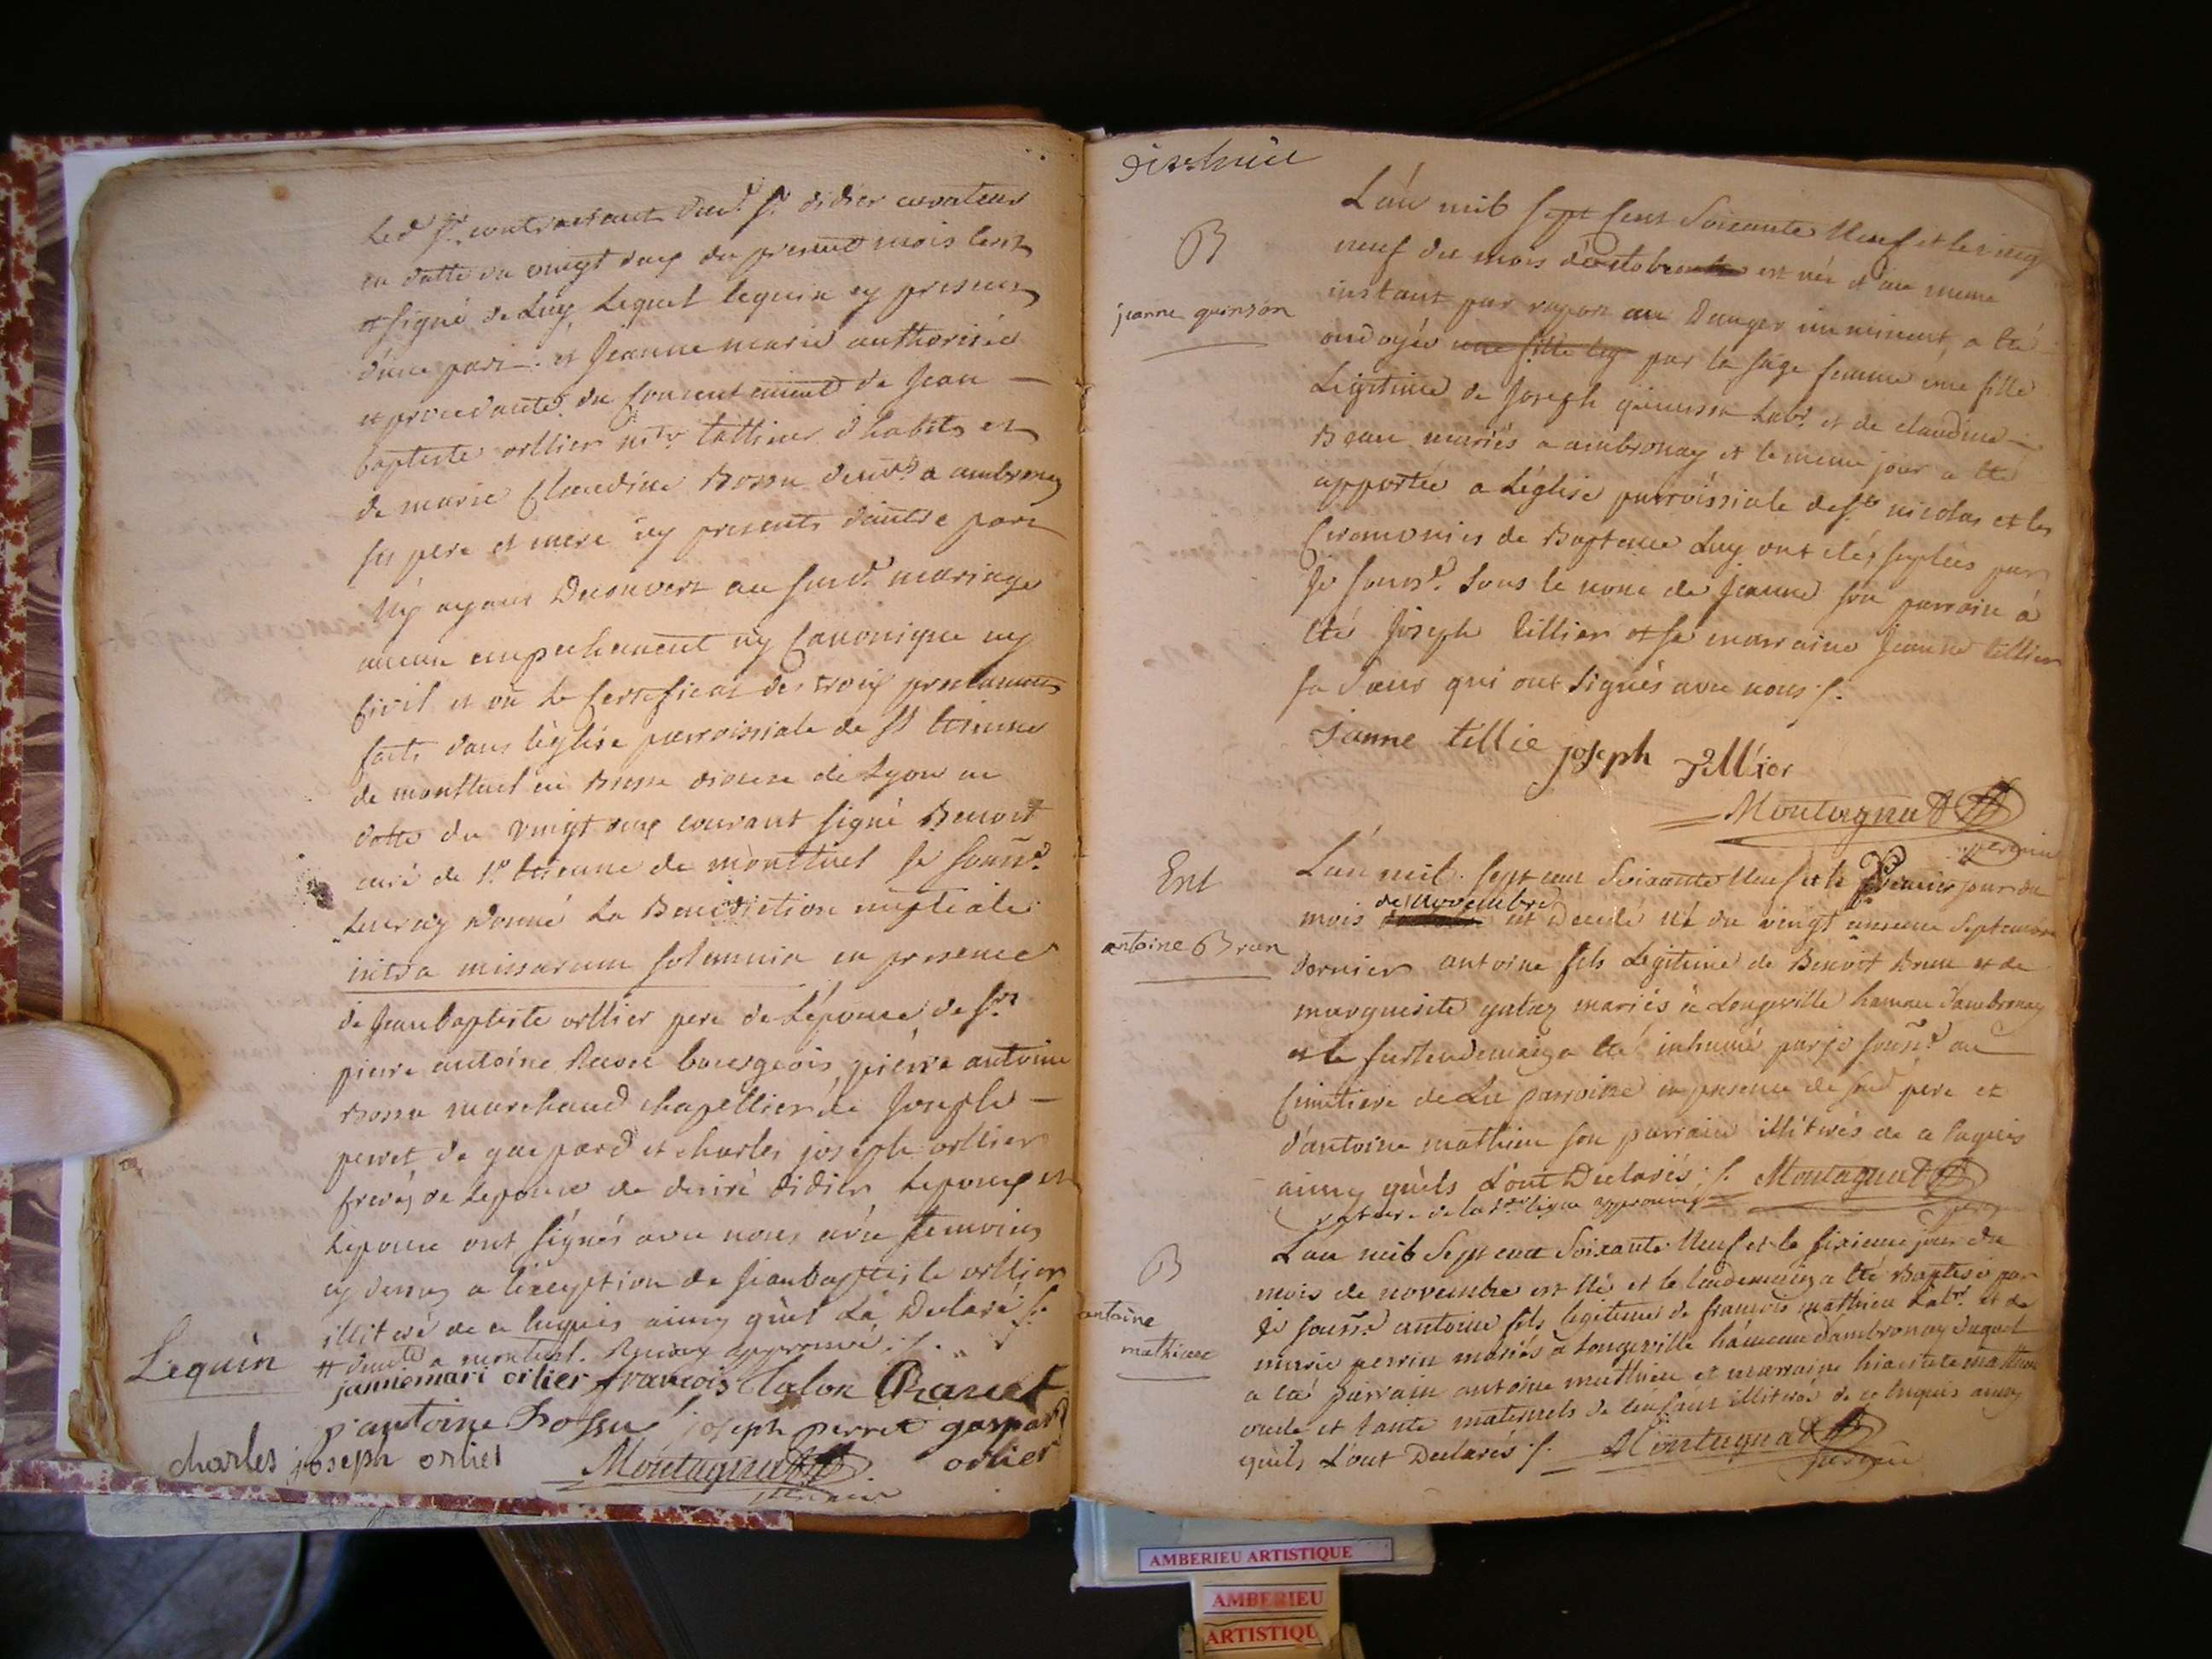 Led. Sr. contractant dud. Sr. didier curateur
en datte du vingt deux du present mois
et signé de Luy Lequel lequin cy present
d'une part. et Jeanne marie authorisée
et procedante du Consentement de Jean
baptiste orllier mtre tallieur d'habits et
de marie Claudine Bossu demts. a ambronay
ses pere et mere icy presents d'autre part
N'y ayant Decouvert au susd. mariage
aucun empechement ny Canonique ny
Civil et vû le Certificat des trois proclamations
faits dans l'église parroissiale de St Etienne
de montluel en Bresse diocese de Lyon en
datte du vingt deux courant signé Benoit
curé de St. Etienne de montluel Je souss.
Leur ay donné La Benediction nuptiale
intra missarum solemnia en presence
de Jean baptiste orllier pere de L'épouse, de Sr.
pierre antoine Ravet bourgeois, pierre antoine
Bossu marchand chapellier, de Joseph
perret, de gaspard et charles joseph orllier
freres de Lepouse de desiré didier Lepoux et
Lepouse ont signés avec nous avec temoins
cy dessus a l'exeption de Jean baptiste orllier
illitéré de ce enquis ainsy qu'il La Declaré
a montluel. Renvoy approuvé
Lequin
janne mari orlier françois Talon Ravet
p antoine bossu joseph perret gaspard
charles joseph orlier Montagnat orlier
dix huit
L'an mil sept Cent Soixante Neuf et le vingt
neuf du mois d'octobre est née et au meme
B
instant par raport au Danger imminent, a été
jeanne quinson
ondoyée une fille leg par la sage femme une fille
Légitime de Joseph quinson Labr. et de claudine
Beau mariés a ambronay et le meme jour a été
apportée a L'église parroissiale de St. nicolas et les
Ceremonies de Bapteme Luy ont étés suplées par
Je souss. sous le nom de Jeanne son parrain à
été Joseph tillier et sa marraine Jeanne tillier
sa Sœur qui ont signés avec nous
janne tillie joseph Tillier
Montagnat
vicaire
Ent
L'an mil sept cent Soixante Neuf et le Premier jour du
de novembre
mois est Decedé né du vingt septembre
antoine Brun
dernier antoine fils Légitime de Benoit Brun et de
marguerite mariés à Longeville hameau d'ambronay
et le surlendemain a été inhumé par je souss. au
Cimetiere de La parroisse en presence de sond. pere et
d'antoine mathieu son parrain illiterés de ce enquis
ainsy qu'ils L'ont Declarés Montagnat
rature de la 2me ligne approuvée
B
L'an mil sept cent Soixante Neuf et le sixieme jour du
mois de novembre est Né et le lendemain a été Baptisé par
antoine
Je souss. antoine fils legitime de françois mathieu Labr. et de
mathieu
marie perrin mariés à Longeville hameau d'ambronay duquel
a été parrain antoine mathieu et marraine hiacinte mathieu
oncle et tante maternels de l'enfant illiterés de ce enquis ainsy
qu'ils L'ont Declarés Montagnat
vicaire
AMBERIEU ARTISTIQUE
AMBERIEU
ARTISTIQU